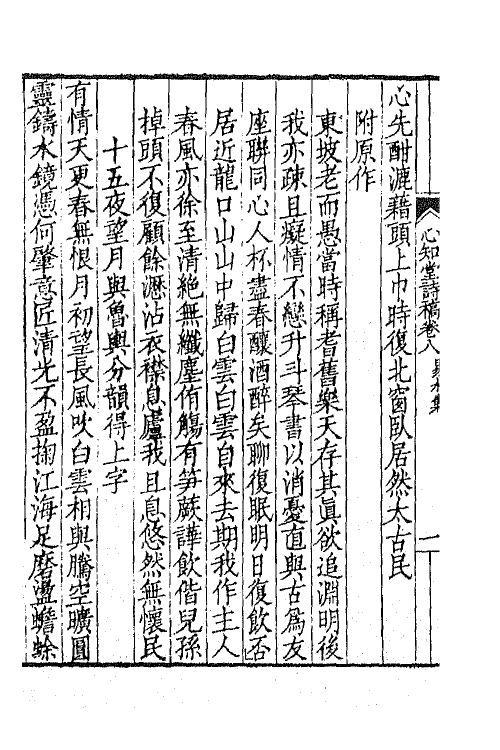 心知堂詩稿卷八
一
心先酣漉藉頭上巾時復北窗臥居然太古民
附原作
東坡老而愚當時稱耆舊樂天存其眞欲追淵明後
我亦疎且癡情不戀升斗琴書以消憂直與古爲友
座聯同心人杯盡春釀酒醉矣聊復眠明日復飲否
居近龍口山山中歸白雲白雲自來去期我作主人
春風亦徐至清絶無纖塵侑觴有笋蕨譁飲偕兒孫
掉頭不復顧餘瀝沾衣襟息廬我且息悠然無懷民
十五夜望月與魯輿分韻得上字
有情天更春無恨月初望長風吹白雲相與騰空曠圓
靈鑄水鏡憑何肇意匠清光不盈掬江海足磨盪蟾蜍